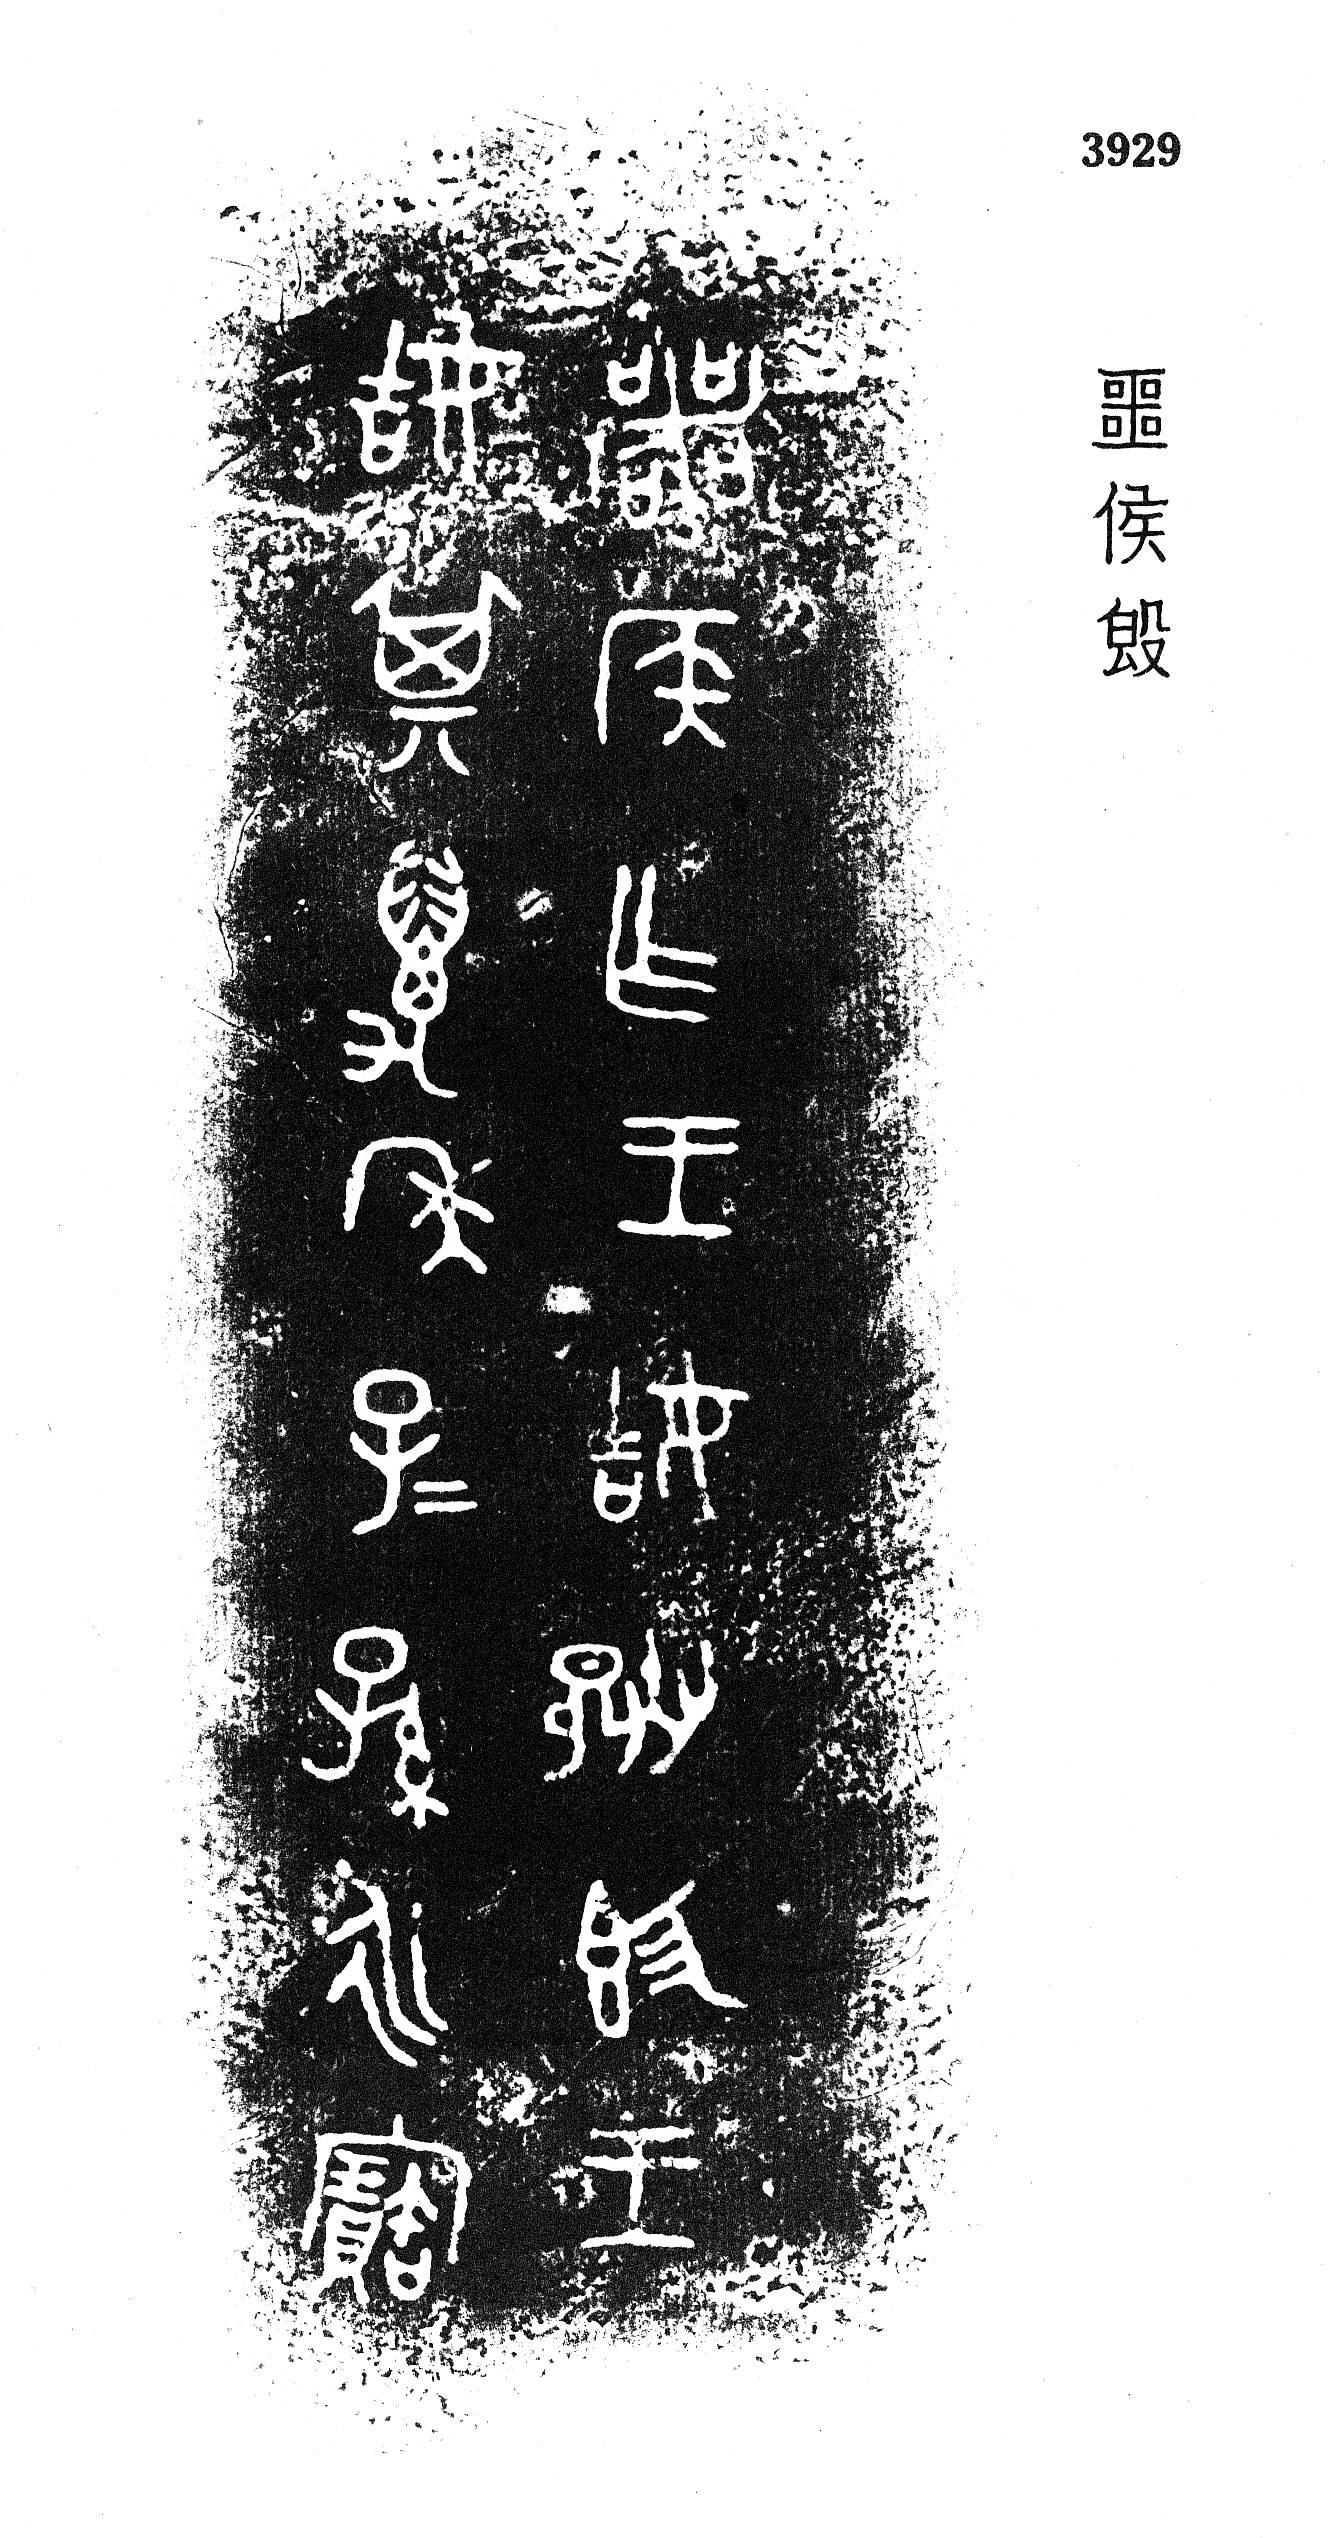 3929
噩侯𣪘
噩侯乍王姞媵𣪘王
姞其萬年子=孫永寶